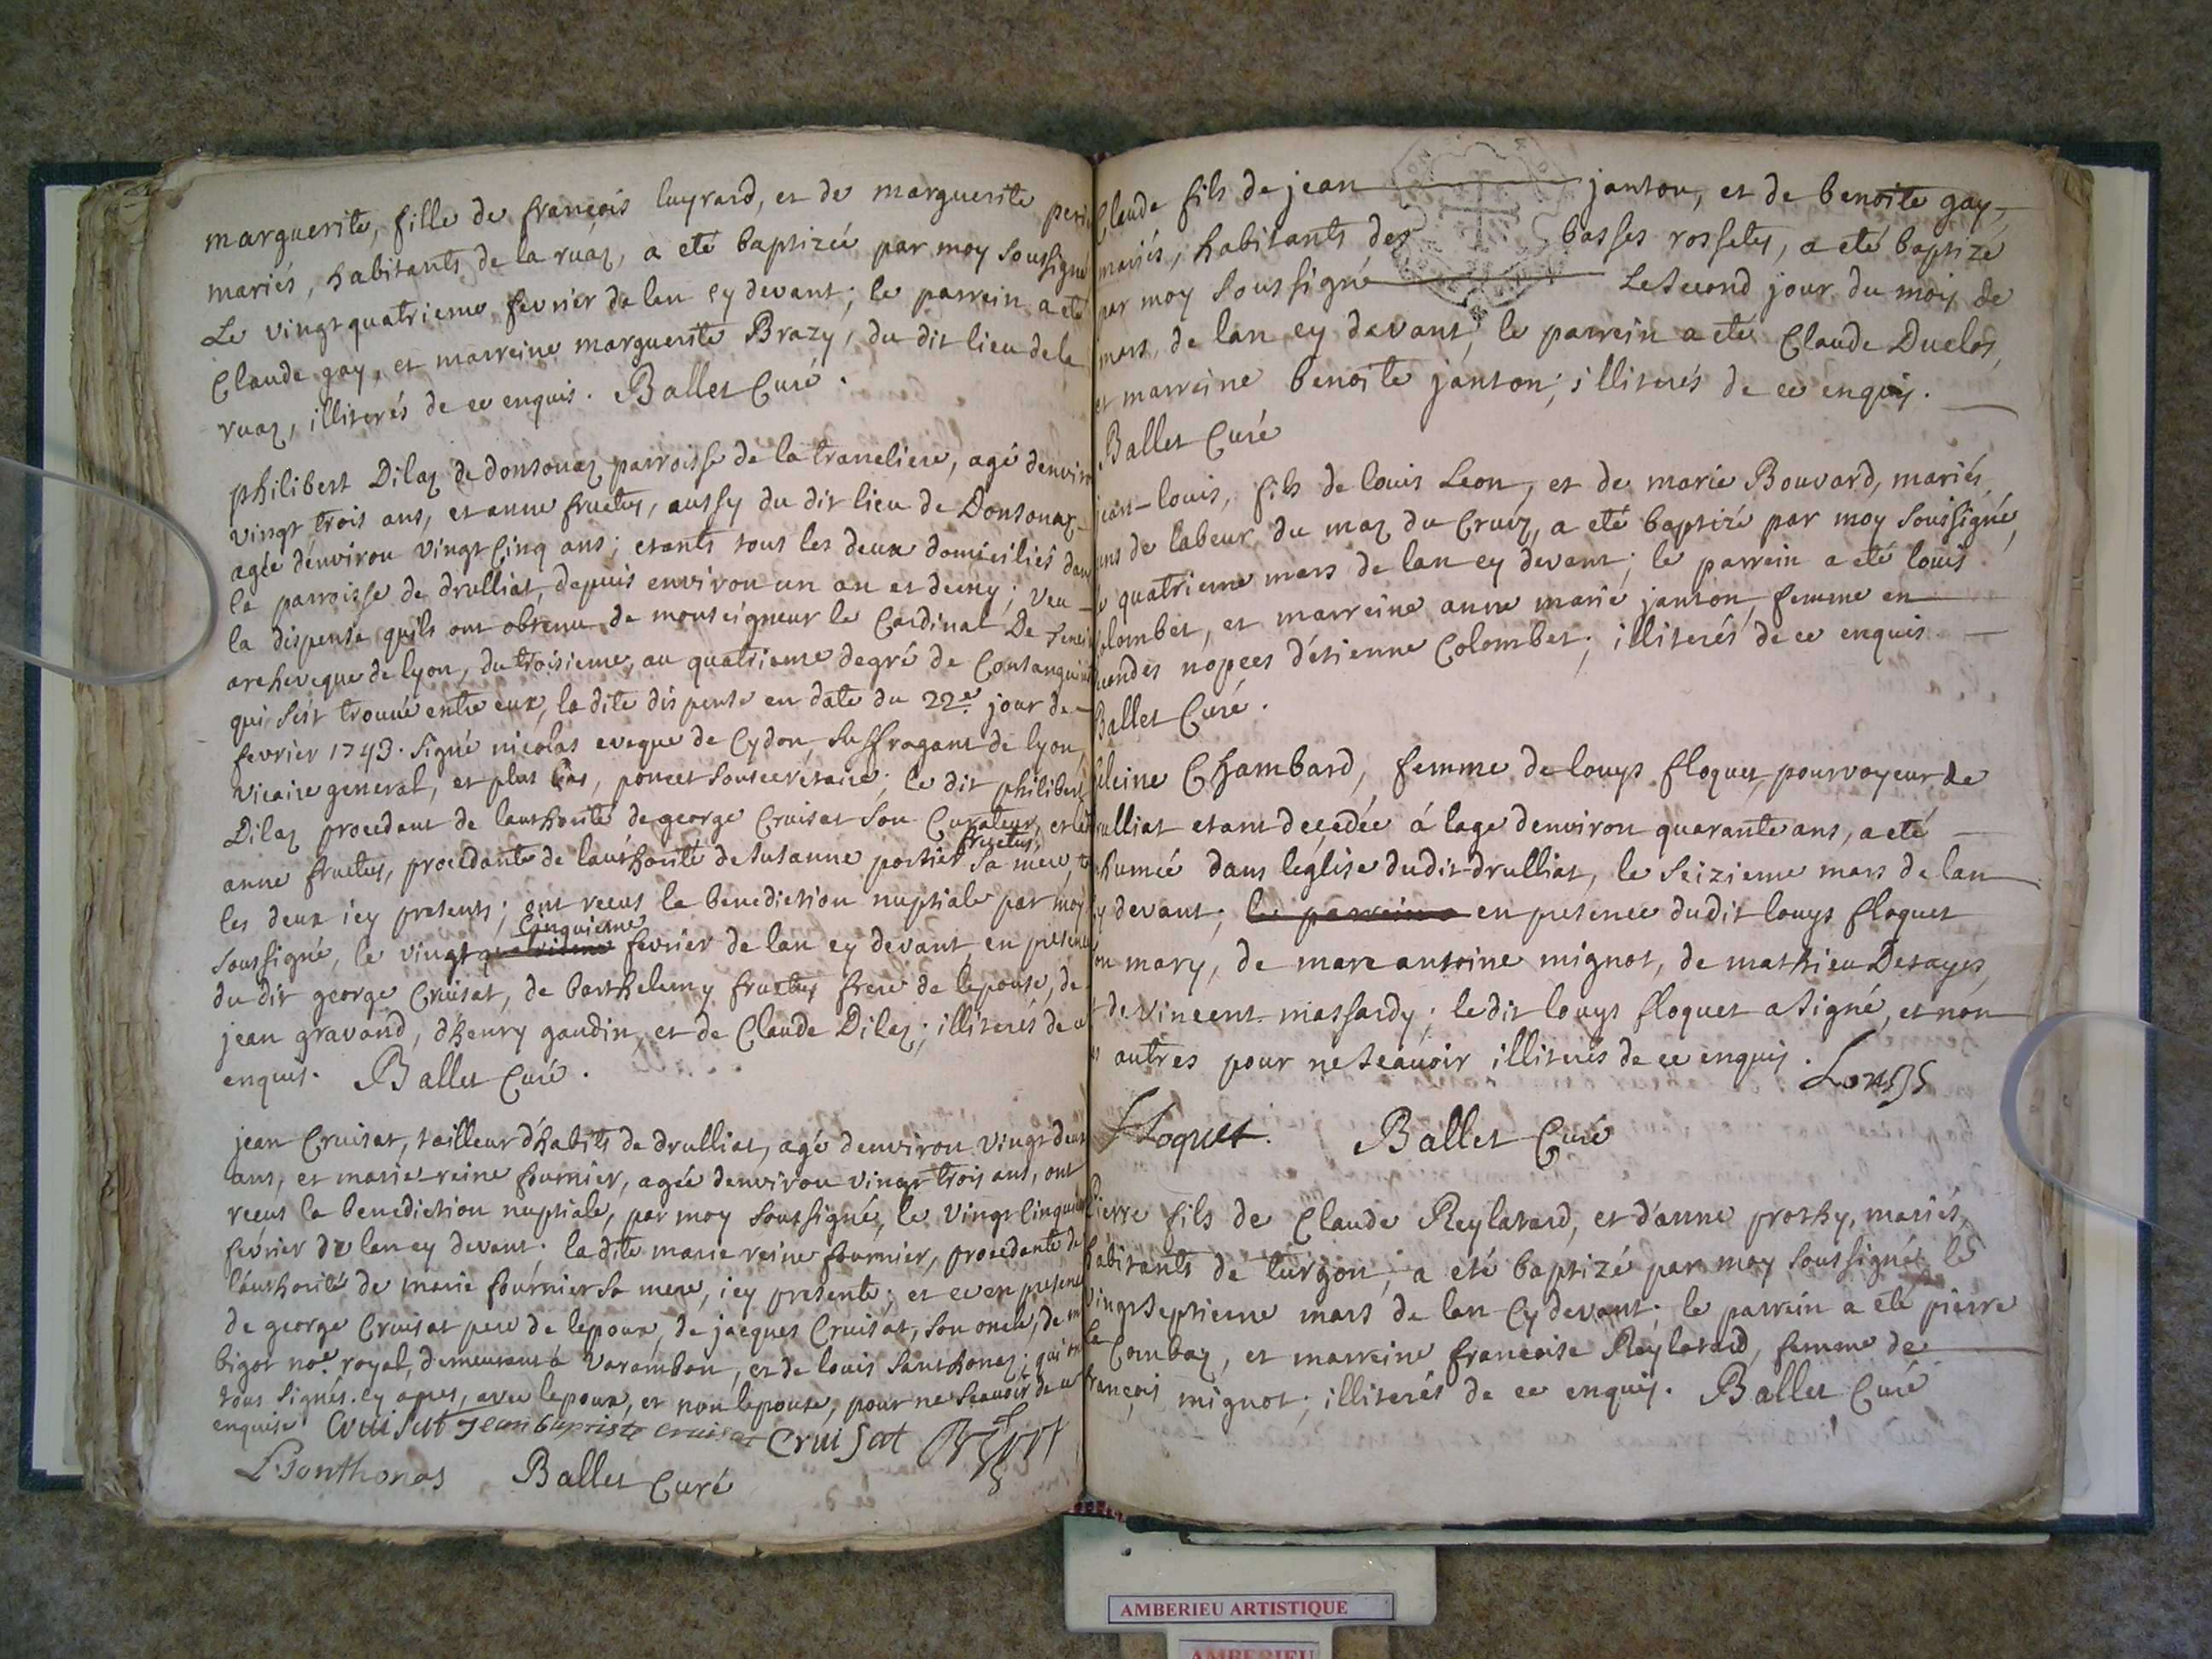 marguerite, fille de françois luyrard, et de marguerite
mariés, habitants de la ruaz, a eté baptizéé par moy soussigné
Le vingt quatrieme fevrier de lan cy devant; le parrein a eté
Claude gay, et marreine marguerite Brazy, du dit lieu de la
ruaz, illiterés de ce enquis. Ballet Curé.
philibert Dilaz de donsonaz parroisse de la tranéliere, agé denviron
vingt trois ans, et anne fructus, aussy du dit lieu de Donsonaz
agée d'environ vingt Cinq ans; etants tous les deux domiciliés dans
la parroisse de drulliat, depuis environ un an et demy; veu
la dispense quils ont obtenu de monseigneur le Cardinal De
archeveque de lyon, du troisieme, au quatrieme degré de Consanguinité
qui s'est trouué entre eux, la dite dispense en date du 22e. jour de
fevrier 1743. signé nicolas eveque de Cydon, suffragant de lyon,
vicaire general, et plus bas, poncet sousecretaire; le dit philibert
Dilaz procedant de lauthorité de george Cruisat son Curateur, et la
frectus,
anne fructus, procedante de lauthorité de Susanne portier sa mere,
les deux icy presents; ont receus la benediction nuptiale par moy
Cinquieme
soussigné, le vingt quatrieme fevrier de lan cy devant, en presence
du dit george Cruisat, de barthelemy fructus frere de lepouse, de
jean gravand, d'henry gaudin, et de Claude Dilaz; illiterés de ce
enquis. Ballet Curé.
jean Cruisat, tailleur d'habits de drulliat, agé denviron vingt deux
ans, et marie reine fournier, agéé denviron vingt trois ans, ont
receus la benediction nuptiale, par moy soussigné, le vingt Cinquieme
fevrier de lan cy devant. la dite marie reine fournier, procedante de
l'authorité de marie fournier sa mere, icy presente; et ce en presence
de george Cruisat pere de lepoux, de jacques Cruisat, son oncle, de
bigot noe. royal, demeurant a Varambon, et de louis Santhonaz; qui ont
tous signés cy apres, avec lepoux, et non lepouse, pour ne scauoir de ce
enquise Cruisat Jean baptiste cruisat Cruisat Bigot
L. Santhonas Ballet Curé
Claude fils de jean janton, et de benoite gay,
mariés, habitants des basses rossetes, a eté baptizé
par moy soussigné Le second jour du mois de
mars, de lan cy devant; le parrein a eté Claude Duclos,
et marreine benoite janton; illiterés de ce enquis.
Ballet Curé
jean-louis, fils de louis Leon, et de marie Bouvard, mariés,
gens de labeur du maz du Cruiz, a eté baptizé par moy soussigné,
le quatrieme mars de lan cy devant; le parrein a eté louis
Colombet, et marreine anne marie janton, femme en
secondes nopces d'etienne Colombet; illiterés de ce enquis.
Ballet Curé.
Chambard, femme de louys floquet, pourvoyeur de
drulliat etant decedée á lage denviron quarante ans, a eté
inhumée dans leglise dudit drulliat, le seizieme mars de lan
cy devant; le parrein a en presence dudit louys floquet
son mary, de marc antoine mignot, de mathieu Desayes,
et de vincent massardy; ledit louys floquet a signé, et non
les autres pour ne sçauoir illiterés de ce enquis. Louys
floquet. Ballet Curé
Pierre fils de Claude Reylavard, et d'anne prothy, mariés,
habitants de turgon; a eté baptizé par moy soussigné le
vingt septieme mars de lan Cy devant; le parrein a eté pierre
la Combaz, et marreine francoise Reylavard, femme de
françois mignot; illiterés de ce enquis. Ballet Curé
AMBERIEU ARTISTIQUE
AMBERIEU